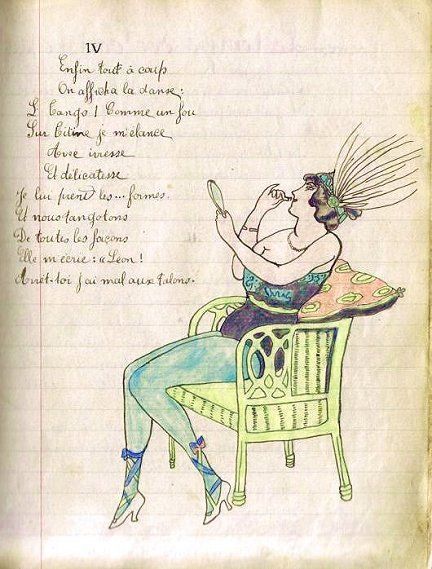 IV
Enfin tout à coup
On afficha la danse:
L Tango! Comme un fou
Sur Titine je m'élance
Avec ivresse
Et délicatesse
Je lui prent les... formes.
Et nous tangotons
De toutes les façons
Elle m'écrie: « Léon!
Arrêt-toi j'ai mal aux talons.